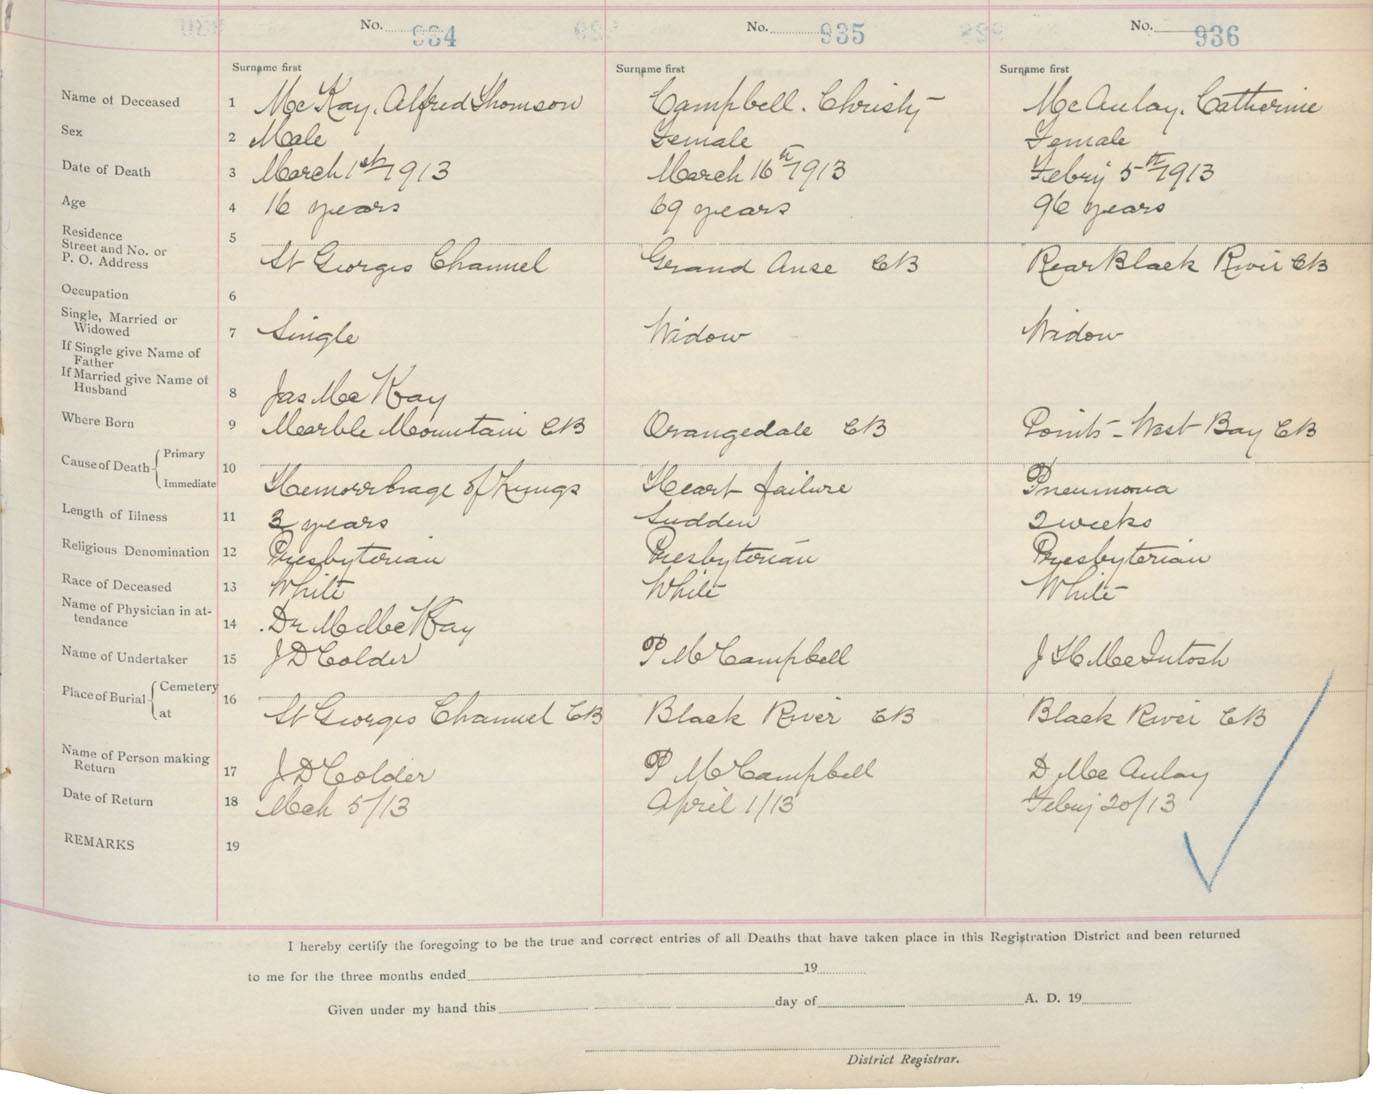 No. 934 No. 935 No. 936
Surname first Surname first Surname first
Name of Deceased 1 McKay, Alfred Thomson Campbell, Christy McAulay, Catherine
Sex 2 Male Female Female
Date of Death 3 March 1st 1913 March 16th 1913 Febry 5th 1913
Age 4 16 years 69 years 96 years
Residence
Street and No. or
P. O. Address 5 St Georges Channel Grand Anse CB Rear Black River CB
Occupation 6
Single, Married or
Widowed 7 Single Widow Widow
If Single give Name of
Father
If Married give Name of
Husband 8 Jas McKay
Where Born 9 Marble Mountain CB Orangedale CB Points - West Bay CB
Cause of Death { Primary
Immediate 10 Hemorrhage of Lungs Heart failure Pneumona
Length of Illness 11 3 years Sudden 2 weeks
Religious Denomination 12 Presbyterian Presbyterian Presbyterian
Race of Deceased 13 White White White
Name of Physician in at-
tendance 14 Dr M McKay
Name of Undertaker 15 J D Calder P McCampbell J H McIntosh
Place of Burial { Cemetery
at 16 St Georges Channel CB Black River CB Black River CB
Name of Person making
Return 17 J D Calder P McCampbell D McAulay
Date of Return 18 Mch 5/13 April 1/13 Febry 20/13
REMARKS 19
I hereby certify the foregoing to be the true and correct entries of all Deaths that have taken place in this Registration District and been returned
to me for the three months ended 19
Given under my hand this day of A. D. 19
District Registrar.